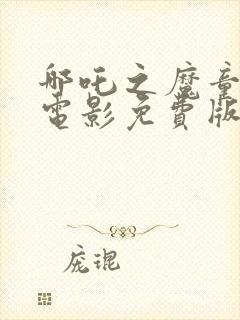 哪吒之魔童
電影免費版
庞琨